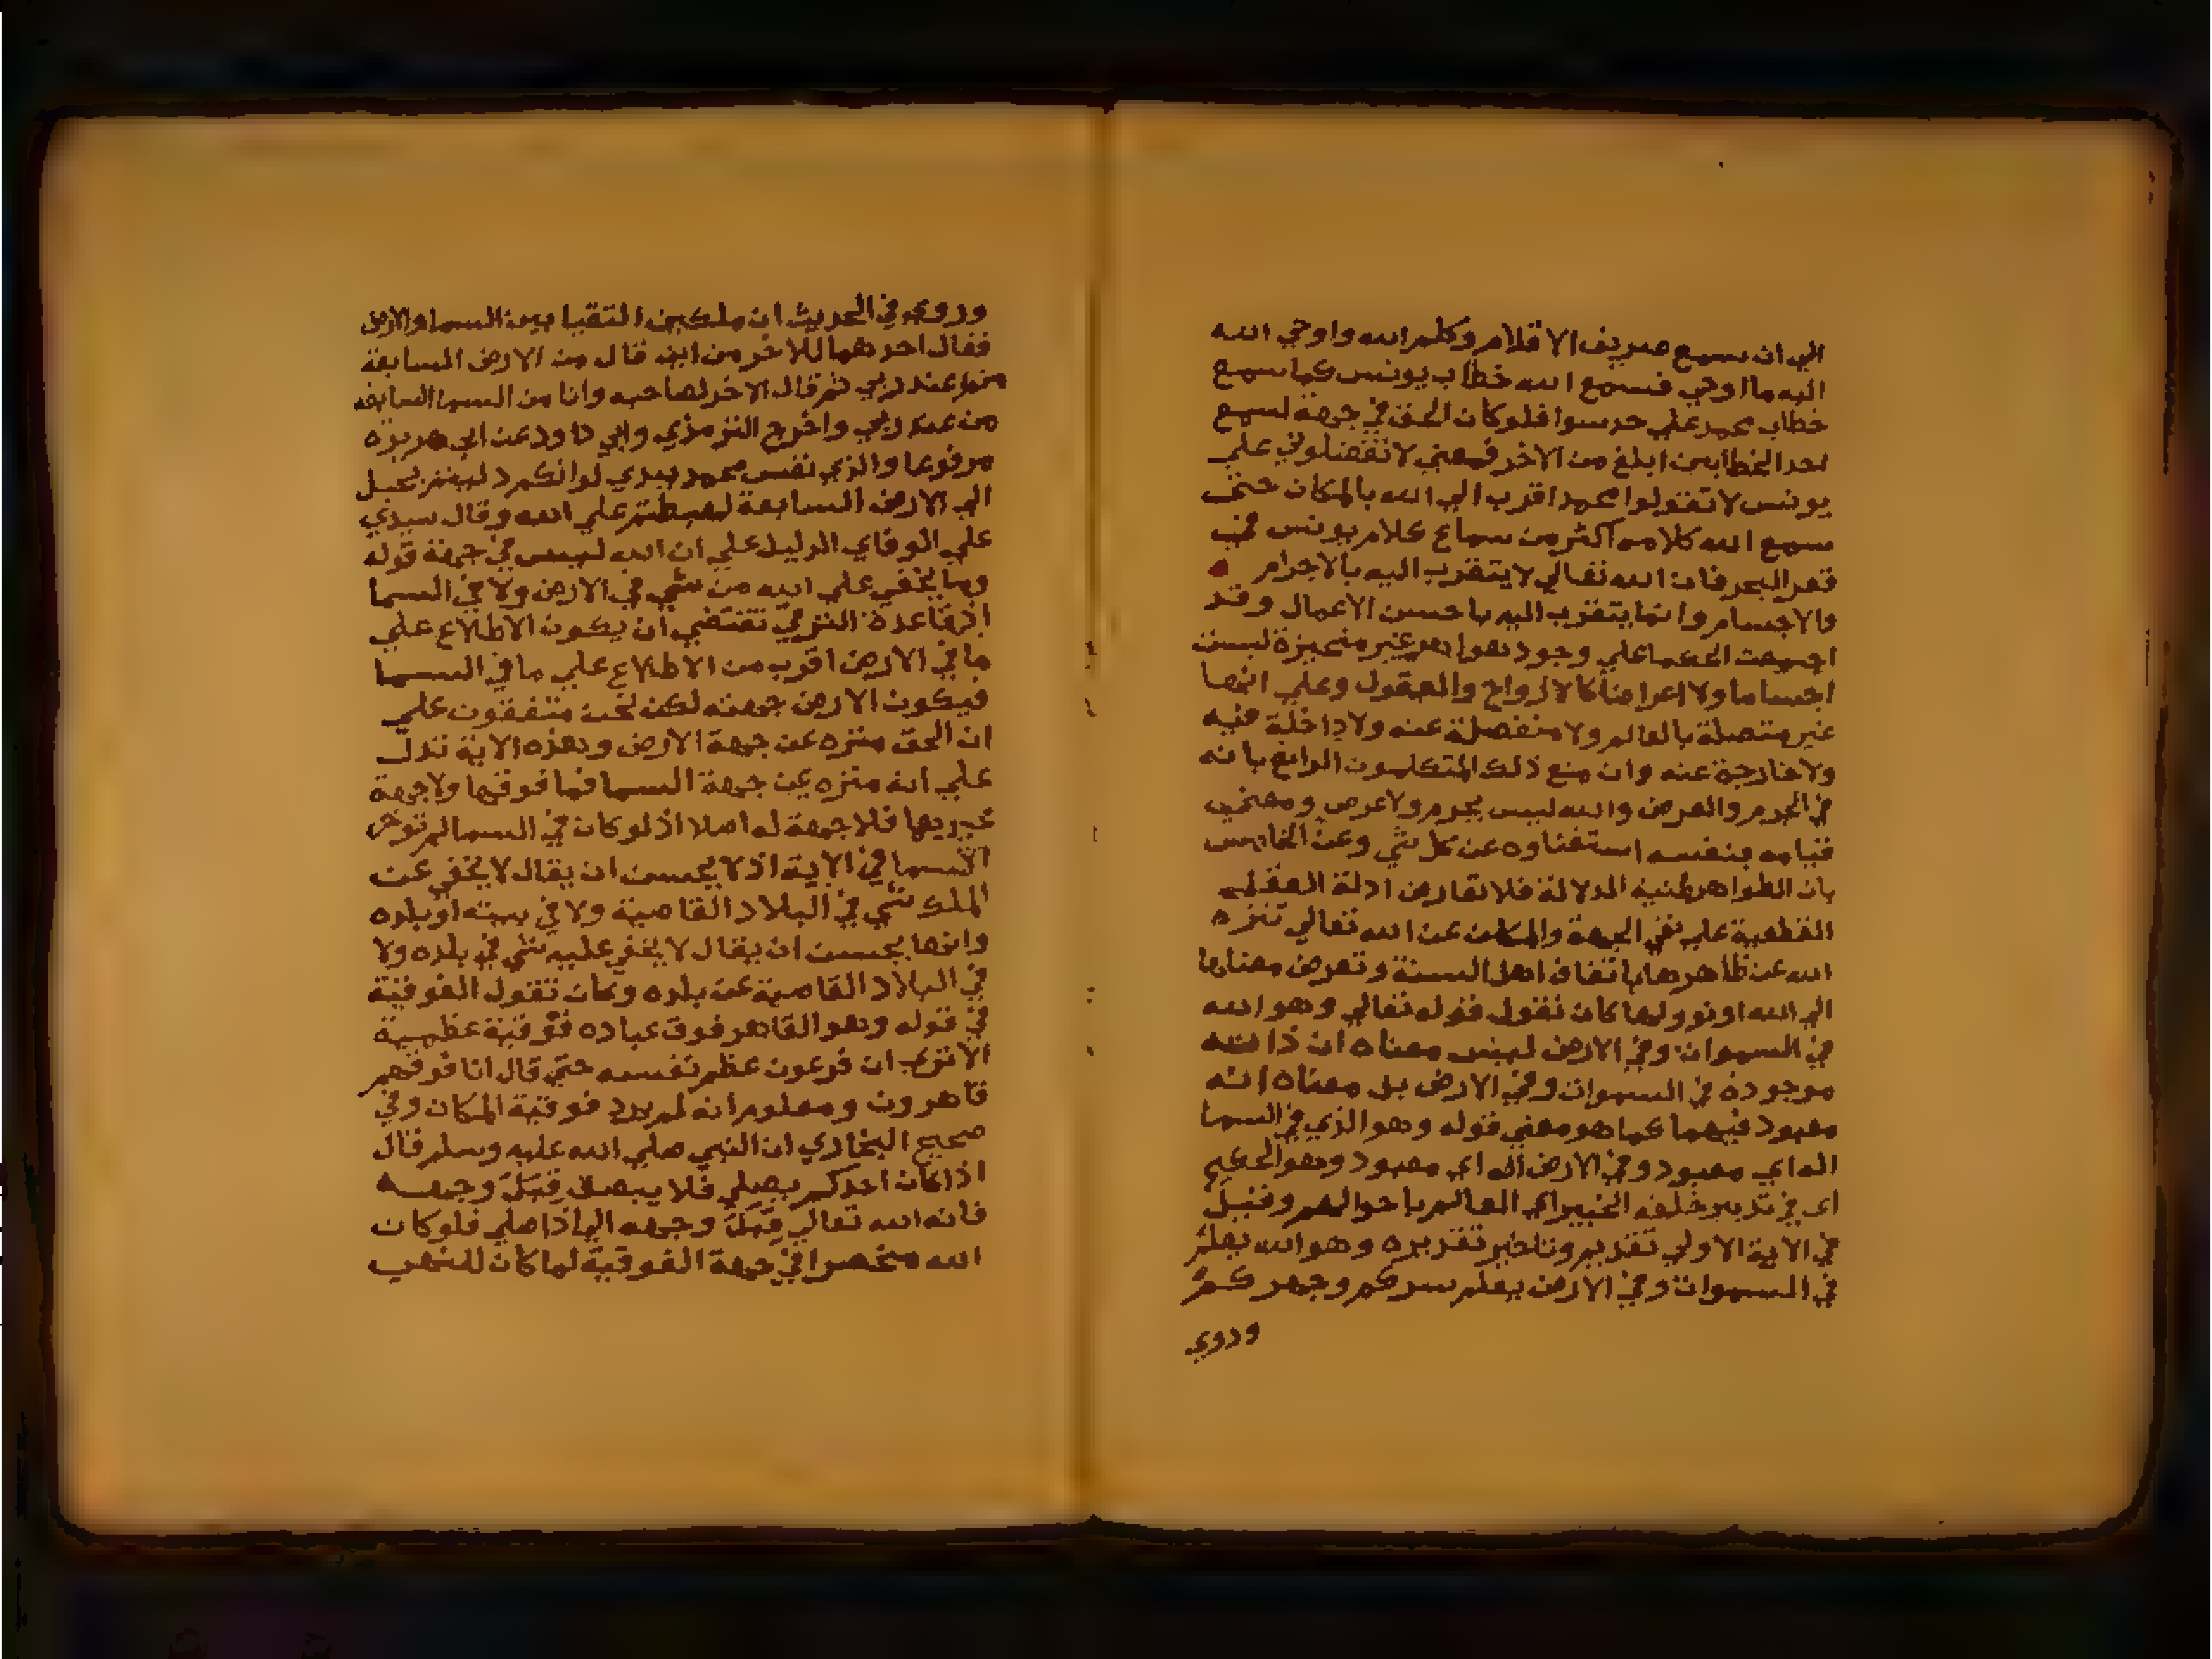 الي ان سمع صريف الاقلام وكلمه الله واوحي الله
اليه ما اوحي فسمع الله خطاب يونس كما سمع
خطاب محمد علي حد سوا فلو كان الحق في جهة لسمع
احد الخطابين ابلغ من الاخر فمعني لا تفضلوني علي
يونس لا تقولوا محمد اقرب الي الله بالمكان حتي
سمع الله كلامه اكثر من سماع كلام يونس في
قعر البحر فان الله تعالي لا يتقرب اليه بالاجرام
والاجسام وانما يتقرب اليه باحسن الاعمال وقد
اجمعت الحكما علي وجود جواهر غير متحيزة ليست
اجساما ولا اعراضا كالارواح والعقول وعلي انها
غير متصلة بالعالم ولا منفصلة عنه ولا داخلة فيه
ولا خارجة عنه وان منع ذلك المتكلمون الرائغ بانه
في الجرم والعرض والله ليس بجرم ولا عرض ومعني
قيامه بنفسه استغناوه عن كل شي وعن الخامس
بان الظواهر ظنية الدلالة فلا تعارض ادلة العقل
القطعية علي نفي الجهة والمكان عن الله تعالي تنزه
الله عن ظاهرها باتفاق اهل السنة وتعرض معناها
الي الله او نوولها كان نقول قوله تعالي وهو الله
في السموات وفي الارض ليس معناه ان ذاته
موجوده في السموات وفي الارض بل معناه انه
معبود فيهما كما هو معني قوله وهو الذي في السما
اله اي معبود وفي الارض اله اي معبود وهو الحكيم
اي في تدبير خلقه الخبير اي العالم باحوالهم وقيل
في الاية الاولي تقديم وتاخير تقديره وهو الله يعلم
في السموات وفي الارض يعلم سركم وجهركم
وروي
وروي في الحديث ان ملكين التقيا بين السما والارض
فقال احدهما للاخر من اين قال من الارض السابعة
من عند ربي ثم قال الاخر لصاحبه وانا من السما السابعة
من عند ربي واخرج الترمذي وابي داود عن ابي هريرة
مرفوعا والذي نفس محمد بيده لو انكم دليتم بحبل
الي الارض السابعة لهبطتم علي الله وقال سيدي
علي الوفاي الدليل علي ان الله ليس في جهة قوله
وما يخفي علي الله من شي في الارض ولا في السما
اذ قاعدة الترقي تقتضي ان يكون الاطلاع علي
ما في الارض اقرب من الاطلاع علي ما في السما
فيكون الارض جهته لكن نحن متفقون علي
ان الحق منزه عن جهة الارض وهذه الاية تدل
علي انه منزه عن جهة السما فما فوقها ولا جهة
غيرها فلا جهة له اصلا اذ لو كان في السما لم توخر
السما في الاية اذ لا يحسن ان يقال لا يخفي عن
الملك شي في البلاد القاصية ولا في بيته او بلده
وانما يحسن ان يقال لا يخفي عليه شي في بلده ولا
في البلاد القاصية عن بلده وكان تقول الفوقية
في قوله وهو القاهر فوق عباده فوقية عظمية
الا تري ان فرعون عظم نفسه حتي قال انا فوقهم
قاهرون ومعلوم انه لم يرد فوقية المكان وفي
صحيح البخاري ان النبي صلي الله عليه وسلم قال
اذا كان احدكم يصلي فلا يبصق قِبَلَ وجهه
فان الله تعالي قِبَلَ وجهه الي اذا صلي فلو كان
الله منحصرا في جهة الفوقية لما كان للنهي